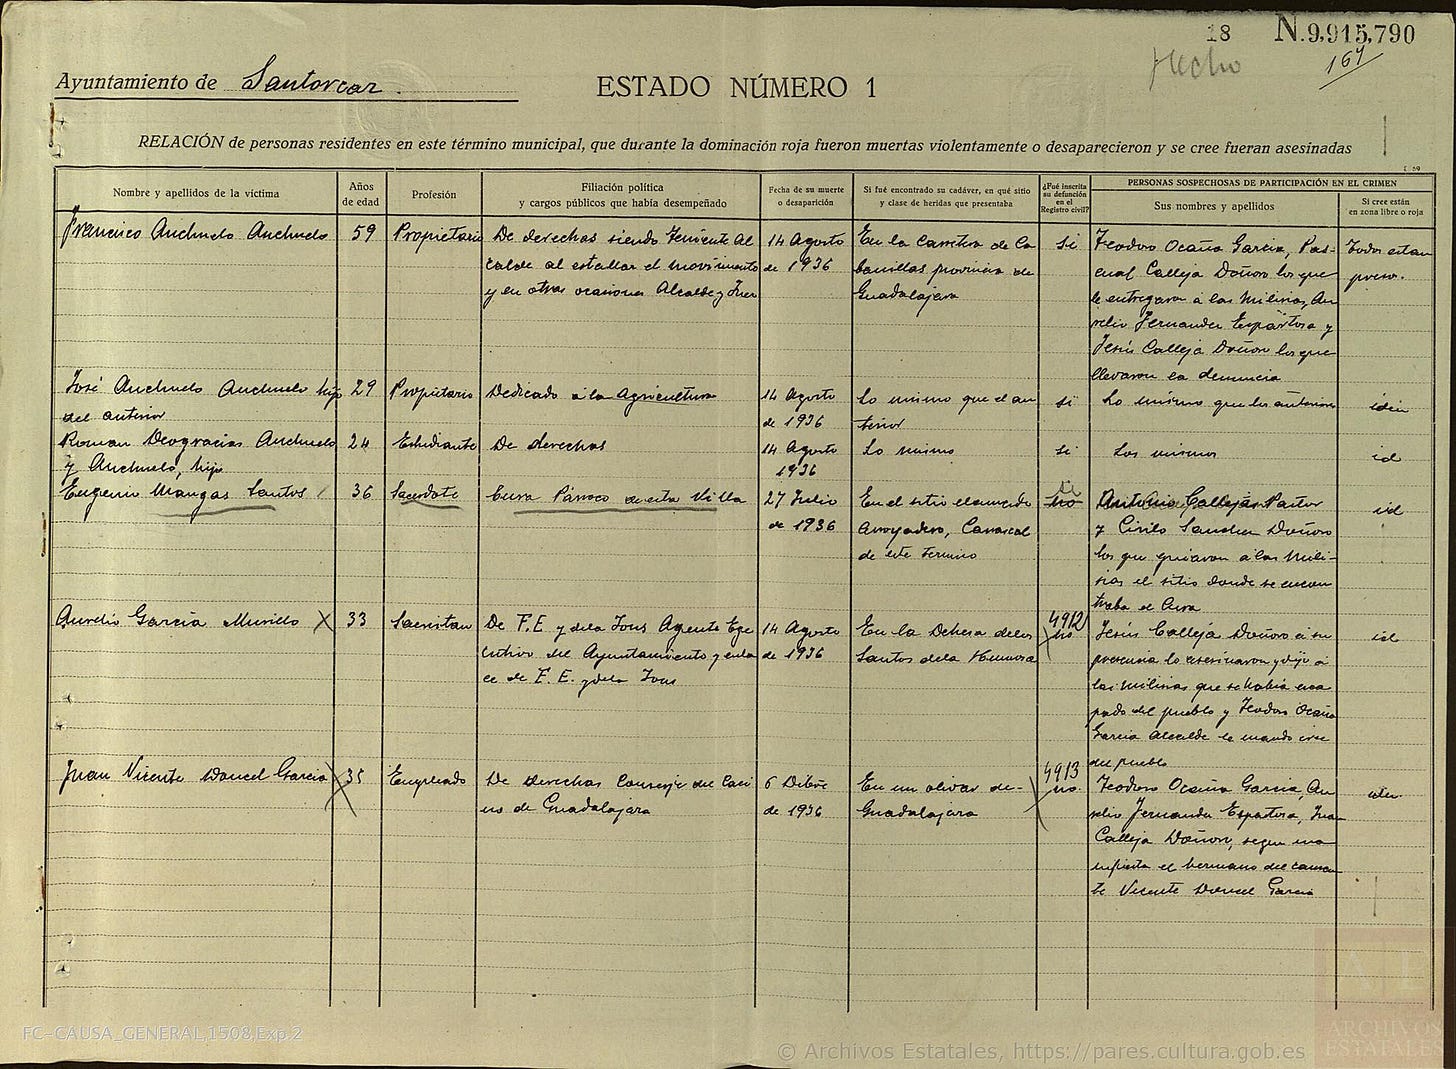 18 N.9,915,790
hecho 167
Ayuntamiento de Santorcaz.
ESTADO NÚMERO 1
RELACIÓN de personas residentes en este término municipal, que durante la dominación roja fueron muertas violentamente o desaparecieron y se cree fueran asesinadas
Nombre y apellidos de la víctima
Años
de edad
Profesión
Filiación política
y cargos públicos que había desempeñado
Fecha de su muerte
o desaparición
Si fué encontrado su cadáver, en qué sitio
y clase de heridas que presentaba
¿Fué inscrita
su defunción
en el
Registro civil?
PERSONAS SOSPECHOSAS DE PARTICIPACIÓN EN EL CRIMEN
Sus nombres y apellidos
Si cree están
en zona libre o roja
Francisco Anchuelo Anchuelo
59
Propietario
De derechas siendo Teniente Al
calde al estallar el movimiento
y en otras ocasiones Alcalde y Juez
14 Agosto
de 1936
En la Carretera de Ca
banillas provincia de
Guadalajara
si
Teodoro Ocaña Garcia, Pas-
cual Calleja Doñoro los que
le entregaron á las milicias, Au
relio Fernandez Espartosa y
Jesús Calleja Doñoro los que
llevaron la denuncia
Todos estan
presos.
José Anchuelo Anchuelo hijo
del anterior
29
Propietario
Dedicado á la Agricultura
14 Agosto
de 1936
Lo mismo que el an
terior
si
Lo mismo que los anteriores
idem
Roman Deogracias Anchuelo
y Anchuelo, hijo
24
Estudiante
De derechas
14 Agosto
1936
Lo mismo
si
Los mismos
id
Eugenio Mangas Santos
36
Sacerdote
Cura Párroco de esta Villa
27 Julio
de 1936
En el sitio denominado
Arroyadero, Carrascal
de este termino
si
no
Antonio Calleja Pastor
y Cirilo Sanchez Doñoro
los que guiaron á las mili-
cias el sitio donde se encon
traba el Cura
id
Aurelio García Murillo X
33
Sacristan
De F.E y de la Jons Agente Eje
cutivo del Ayuntamiento y enla
ce de F. E. y de la Jons
14 Agosto
de 1936
En la Dehesa de los
Santos de la Humosa
4912
no.
Jesús Calleja Doñoro á su
presencia lo asesinaron y dijo á
las milicias que se habia esca
pado del pueblo y Teodoro Ocaña
Garcia Alcalde le mando irse
del pueblo
id
Juan Vicente Doncel Garcia
35
Empleado
De Derechas Conserje del Casi
no de Guadalajara
6 Dicbre
de 1936
En un olivar de-
Guadalajara
4913
no.
Teodoro Ocaña Garcia, Au
relio Fernandez Espartosa, Juan
Calleja Doñoro, segun ma
nifiesta el hermano del causan
te Vicente Doncel Garcia
idem
FC-CAUSA_GENERAL,1508,Exp.2
© Archivos Estatales, https://pares.cultura.gob.es
ARCHIVOS
ESTATALES